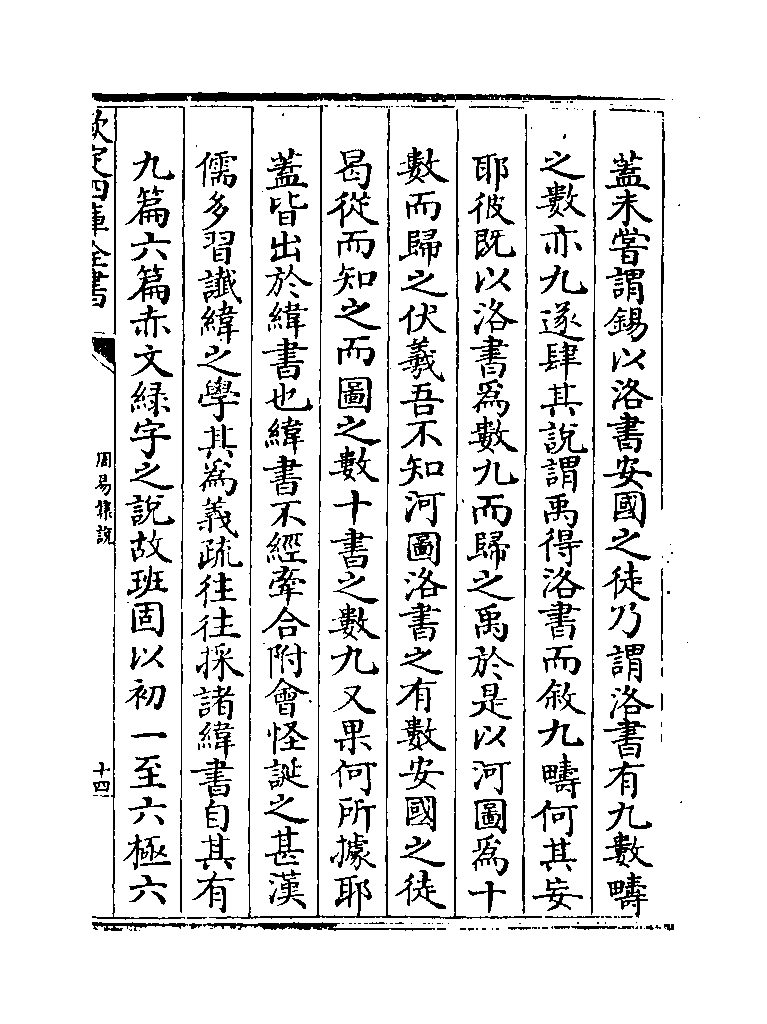 蓋未嘗謂錫以洛書安國之徒乃謂洛書有九數疇
之數亦九遂肆其說謂禹得洛書而敘九疇何其妄
耶彼既以洛書爲數九而歸之禹於是以河圖爲十
數而歸之伏羲吾不知河圖洛書之有數安國之徒
曷從而知之而圖之數十書之數九又果何所據耶
蓋皆出於緯書也緯書不經牽合附會怪誕之甚漢
儒多習讖緯之學其爲義疏往往採諸緯書自其有
九篇六篇赤文綠字之說故班固以初一至六極六
欽定四庫全書
周易集說
十四